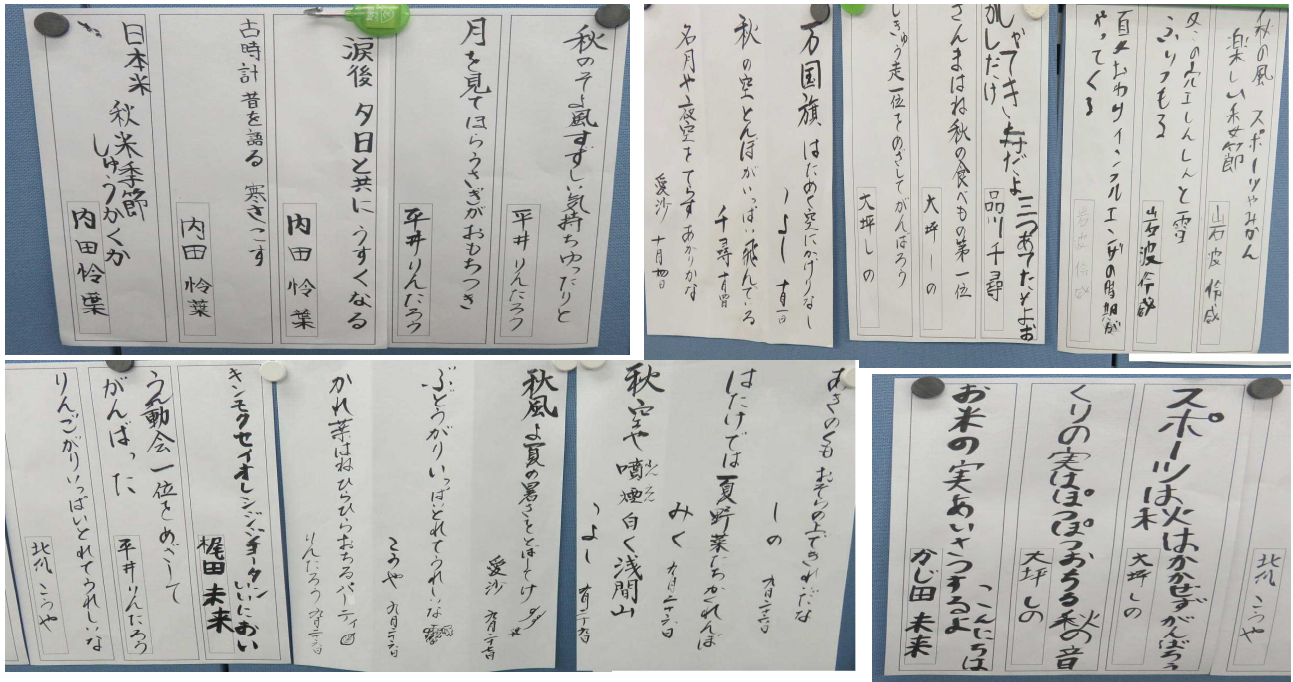 秋のそよ風すずしい気持ちゆったりと
平井りんたろう
月を見てほらうさぎがおもちつき
平井りんたろう
涙後 夕日と共に うすくなる
内田怜葉
古時計 昔を語る 寒さこす
内田怜葉
日本米 秋米季節 しゅうかくか
内田怜葉
万国旗 はためく空にかげりなし
つよし
秋の空とんぼがいっぱい飛んでいる
千尋
名月や夜空をてらすあかりかな
愛沙 十月四日
しゃてきだよ三つあてたぞよお
かしだけ
品川千尋
さんまはね秋の食べもの第一位
大坪しの
しきゅう走一位をめざしてがんばろう
大坪しの
秋の風 スポーツやみかん
楽しい季節
岩波怜
冬の
しんしんと雪
ふりつもる
岩波
夏おわりインフルエンザの時期が
やってくる
あきのくも おそらの上できれいだな
しの 九月二十六日
はたけでは夏野菜たちかくれんぼ
みく 九月二十六日
秋空や噴煙白く浅間山
つよし 九月二十九日
秋風よ夏の暑さをとばしてけ
愛沙 九月二十七日
ぶどうがりいっぱいとれてうれしいな
こうや 九月二十六日
かれ葉はねひらひらおちるパーティ
りんたろう 九月二十六日
キンモクセイオレンジジョータン
いいにおい
梶田未来
うん動会一位をめざして
がんばった
平井りんたろう
りんごがりいっぱいとれてうれしいな
北爪こうや
北爪こうや
スポーツは火はかかせずがんばろう
大坪しの
くりの実はぽつぽつおちる秋の音
大坪しの
お米の実あいさつするよ
こんにちは
かじ田未来